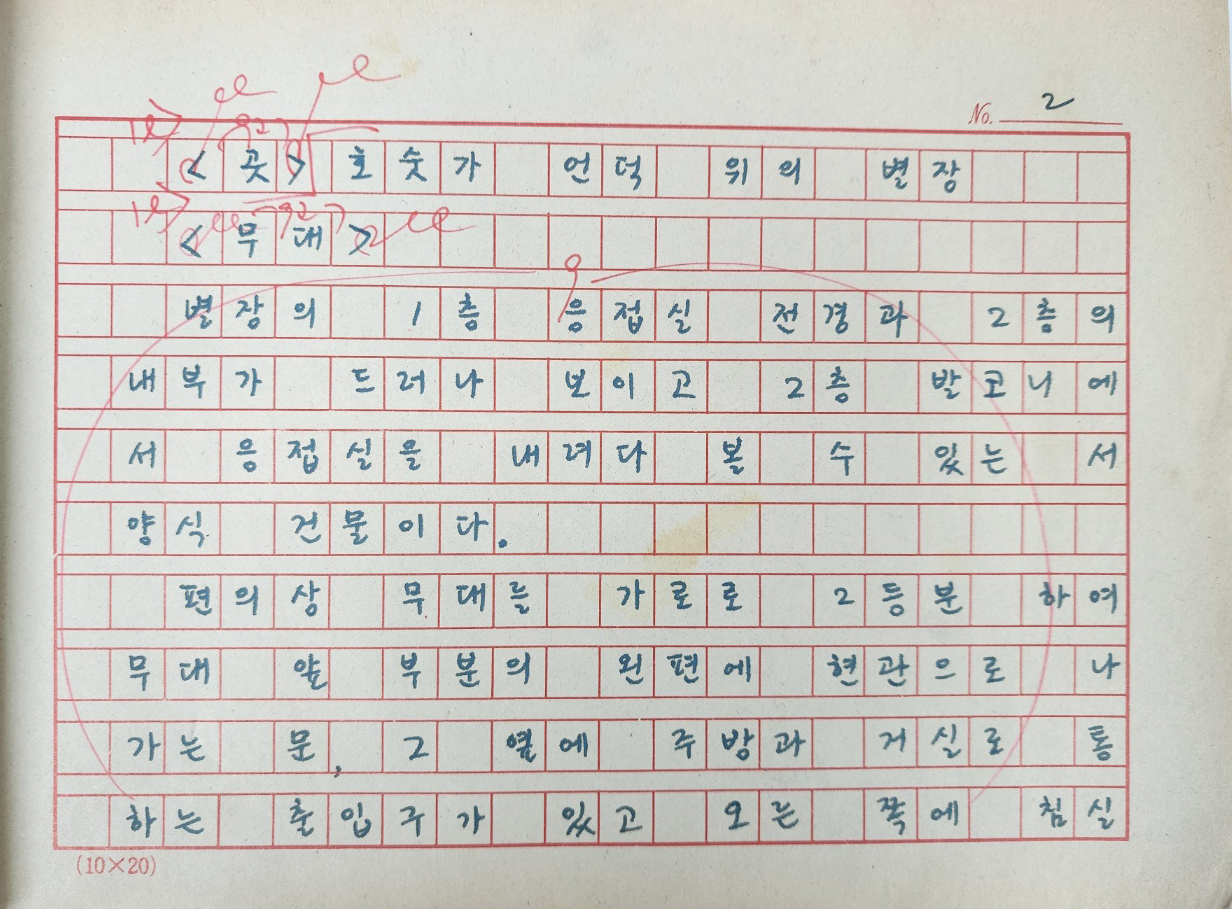 No. 2
<곳> 호숫가 언덕 위의 별장
<무대>
별장의 1층 응접실 전경과 2층의
내부가 드러나 보이고 2층 발코니에
서 응접실을 내려다 볼 수 있는 서
양식 건물이다.
편의상 무대를 가로로 2등분 하여
무대 앞 부분의 왼편에 현관으로 나
가는 문, 그 옆에 주방과 거실로 통
하는 출입구가 있고 오른 쪽에 침실
(10×20)